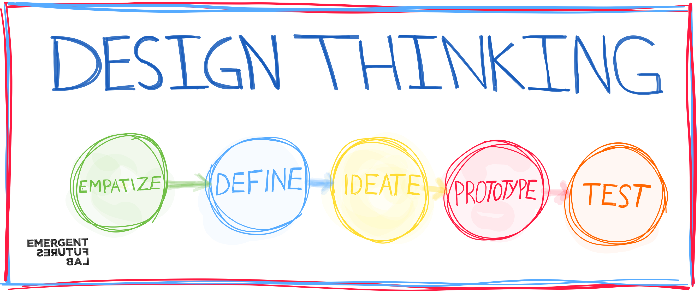 DESIGN THINKING
EMPATIZE
DEFINE
IDEATE
PROTOTYPE
TEST
EMERGENT
FUTURES
LAB